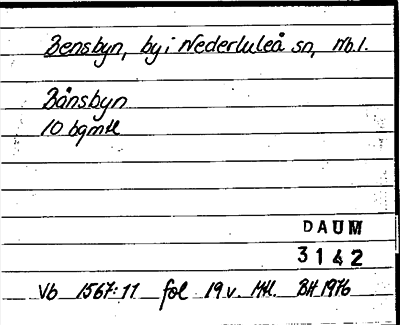 Bensbyn, by i Nederluleå sn, Nb.l.
Bånsbyn
10 bgmtl
DAUM
3142
Vb 1567:11 fol 19 v. Mtl. BH 1976